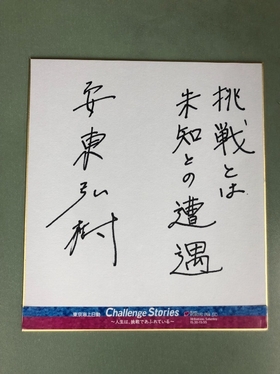 挑戦とは
未知との遭遇
安東弘樹
東京海上日動 Challenge Stories
～人生は、挑戦であふれている～